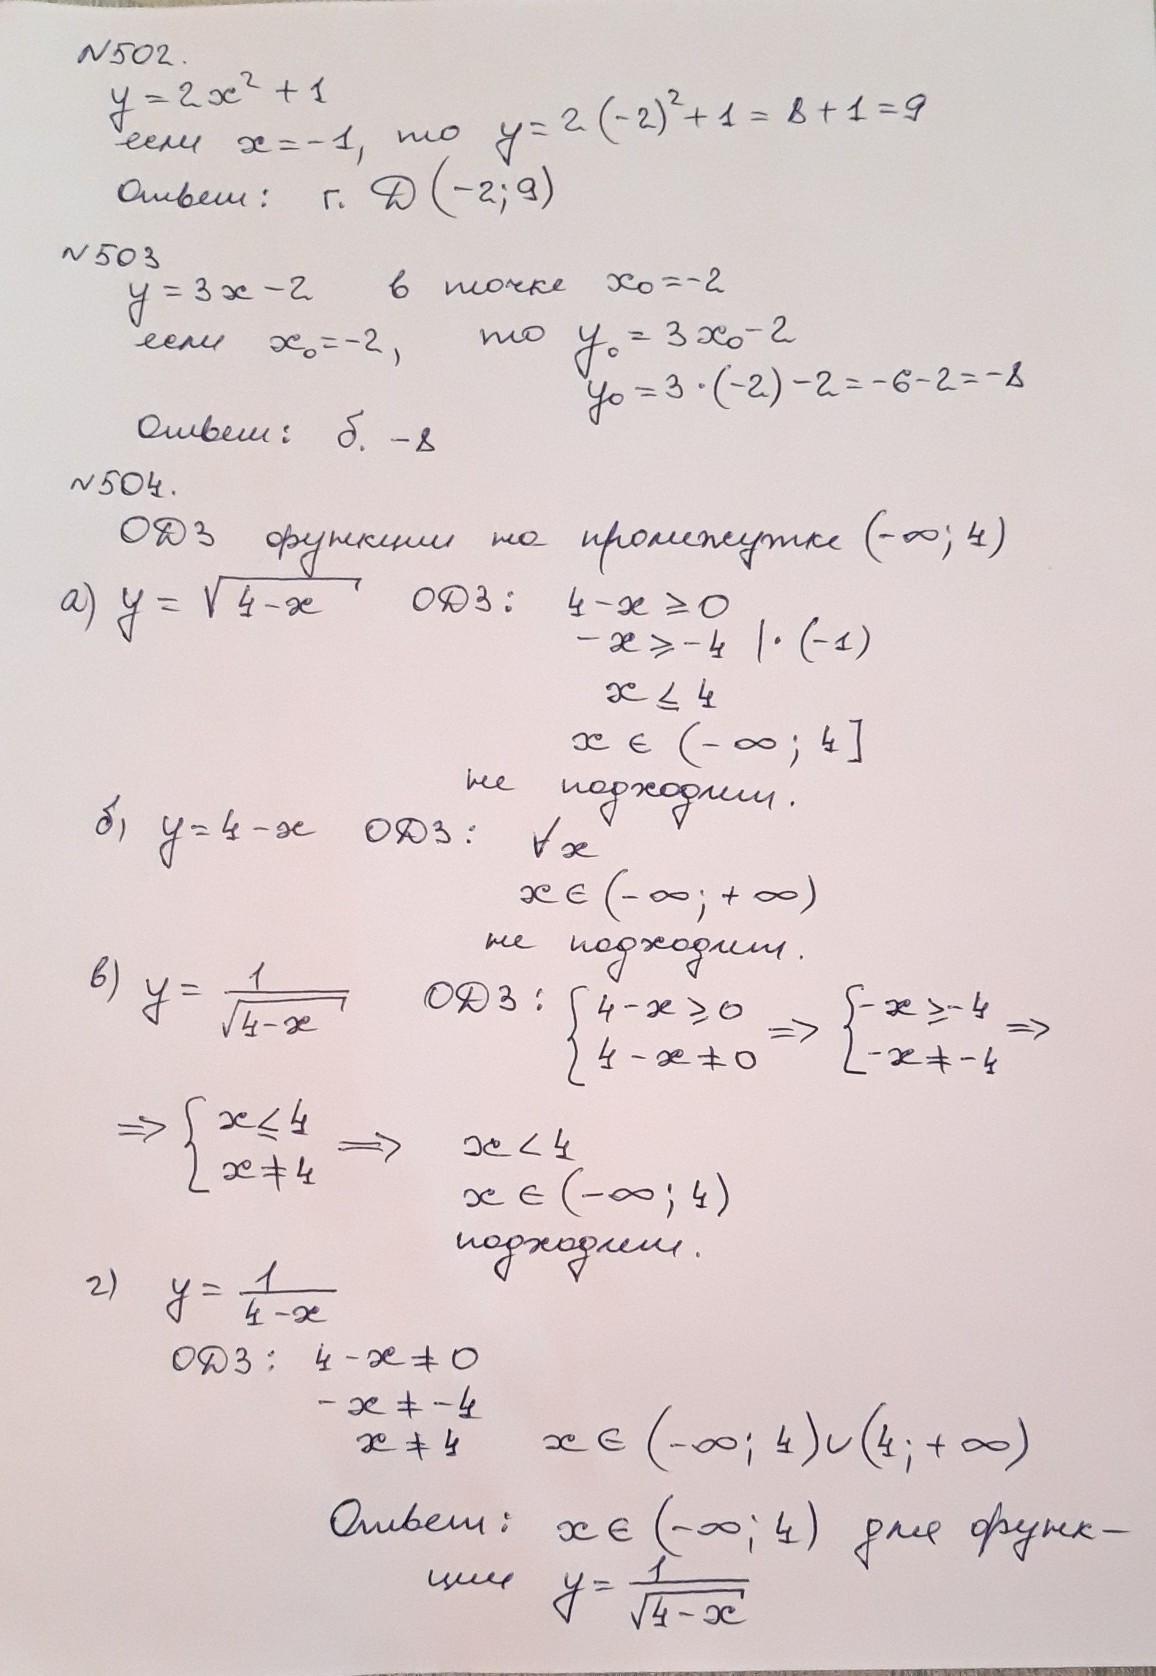 №502.
y = 2x² + 1
если x = -1, то y = 2(-2)² + 1 = 8 + 1 = 9
Ответ: г. D(-2; 9)
№503
y = 3x - 2 в точке x₀ = -2
если x₀ = -2, то y₀ = 3x₀ - 2
y₀ = 3 · (-2) - 2 = -6 - 2 = -8
Ответ: б. -8
№504.
ОДЗ функции на промежутке (-∞; 4)
а) y = √(4-x) ОДЗ: 4 - x ≥ 0
-x ≥ -4 | · (-1)
x ≤ 4
x ∈ (-∞; 4]
не подходит.
б) y = 4 - x ОДЗ: ∀x
x ∈ (-∞; +∞)
не подходит.
в) y = 1/√(4-x) ОДЗ: { 4 - x ≥ 0, 4 - x ≠ 0 => { -x ≥ -4, -x ≠ -4 =>
=> { x ≤ 4, x ≠ 4 => x < 4
x ∈ (-∞; 4)
подходит.
г) y = 1/(4-x)
ОДЗ: 4 - x ≠ 0
-x ≠ -4
x ≠ 4 x ∈ (-∞; 4) ∪ (4; +∞)
Ответ: x ∈ (-∞; 4) для функ-
ции y = 1/√(4-x)